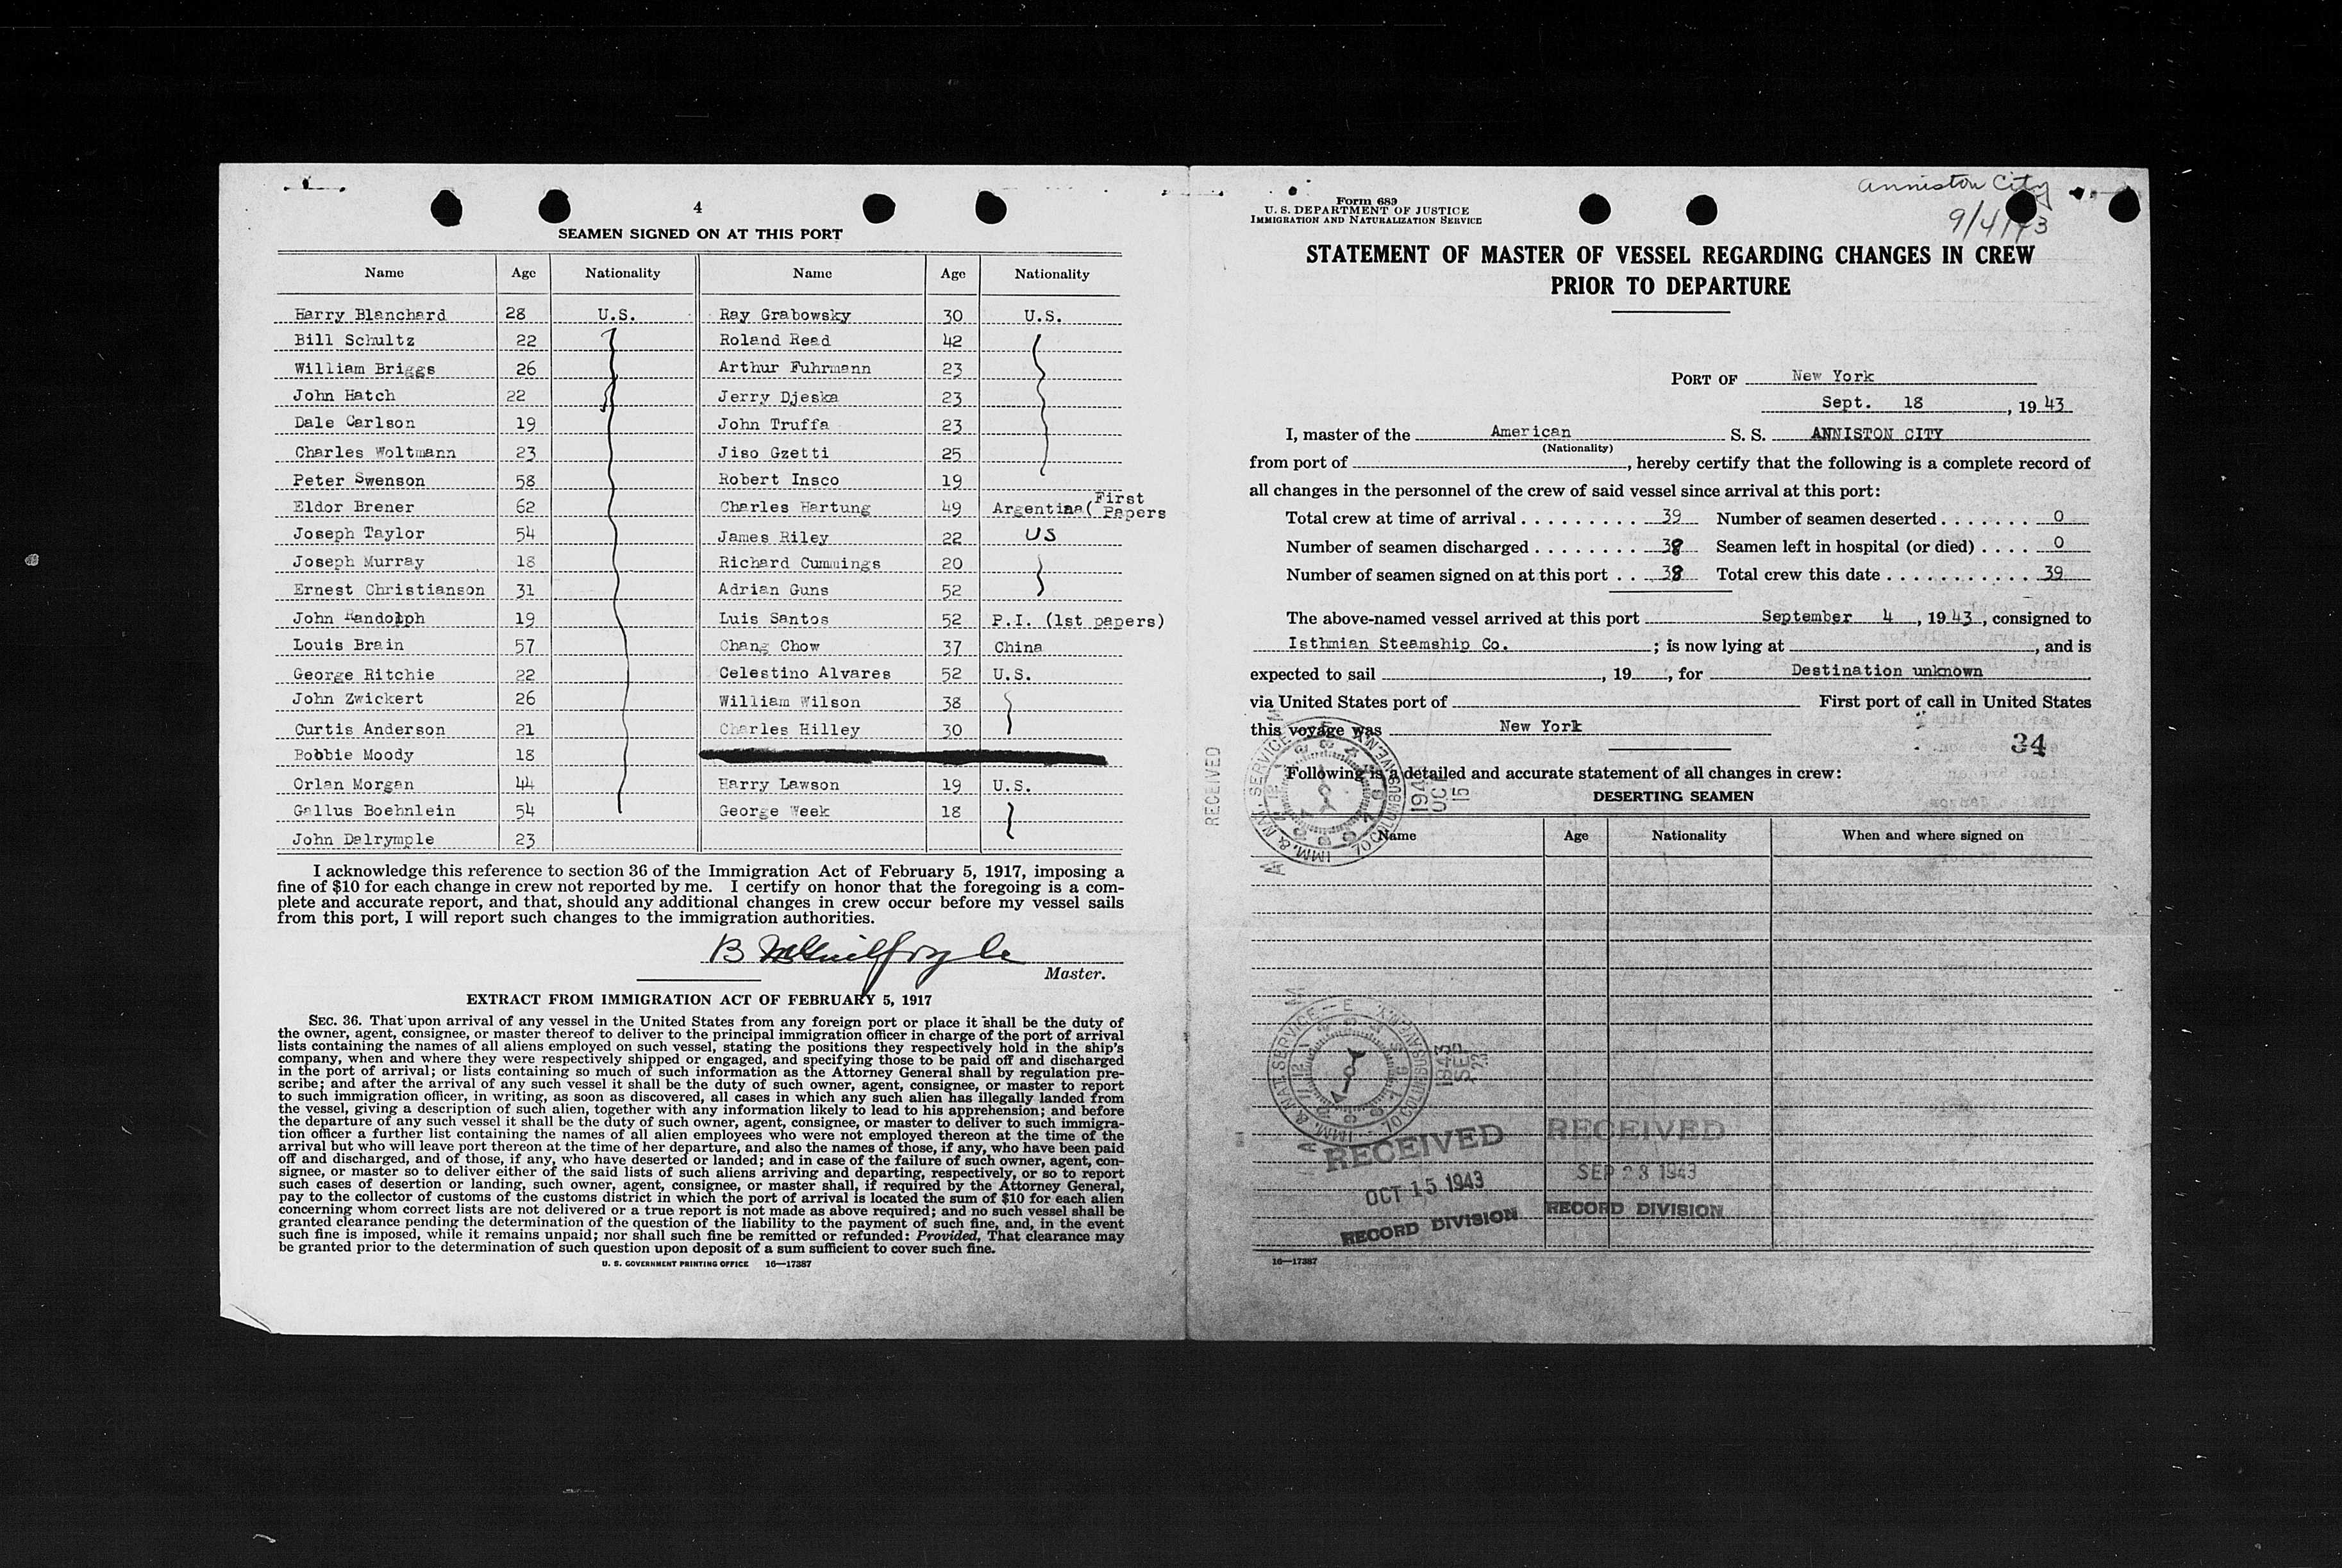 4
SEAMEN SIGNED ON AT THIS PORT
Name Age Nationality Name Age Nationality
Harry Blanchard 28 U.S. Ray Grabowsky 30 U.S.
Bill Schultz 22 Roland Read 42
William Briggs 26 Arthur Fuhrmann 23
John Hatch 22 Jerry Djeska 23
Dale Carlson 19 John Truffa 23
Charles Woltmann 23 Jiso Gzetti 25
Peter Swenson 58 Robert Insco 19
Eldor Brener 62 Charles Hartung 49 Argentina( First Papers
Joseph Taylor 54 James Riley 22 US
Joseph Murray 18 Richard Cummings 20
Ernest Christianson 31 Adrian Guns 52
John Randolph 19 Luis Santos 52 P.I. (1st papers)
Louis Brain 57 Chang Chow 37 China
George Ritchie 22 Celestino Alvares 52 U.S.
John Zwickert 26 William Wilson 38
Curtis Anderson 21 Charles Hilley 30
Bobbie Moody 18
Orlan Morgan 44 Harry Lawson 19 U.S.
Gallus Boehnlein 54 George Week 18
John Dalrymple 23
I acknowledge this reference to section 36 of the Immigration Act of February 5, 1917, imposing a
fine of $10 for each change in crew not reported by me. I certify on honor that the foregoing is a com-
plete and accurate report, and that, should any additional changes in crew occur before my vessel sails
from this port, I will report such changes to the immigration authorities.
B
Master.
EXTRACT FROM IMMIGRATION ACT OF FEBRUARY 5, 1917
SEC. 36. That upon arrival of any vessel in the United States from any foreign port or place it shall be the duty of
the owner, agent, consignee, or master thereof to deliver to the principal immigration officer in charge of the port of arrival
lists containing the names of all aliens employed on such vessel, stating the positions they respectively hold in the ship's
company, when and where they were respectively shipped or engaged, and specifying those to be paid off and discharged
in the port of arrival; or lists containing so much of such information as the Attorney General shall by regulation pre-
scribe; and after the arrival of any such vessel it shall be the duty of such owner, agent, consignee, or master to report
to such immigration officer, in writing, as soon as discovered, all cases in which any such alien has illegally landed from
the vessel, giving a description of such alien, together with any information likely to lead to his apprehension; and before
the departure of any such vessel it shall be the duty of such owner, agent, consignee, or master to deliver to such immigra-
tion officer a further list containing the names of all alien employees who were not employed thereon at the time of the
arrival but who will leave port thereon at the time of her departure, and also the names of those, if any, who have been paid
off and discharged, and of those, if any, who have deserted or landed; and in case of the failure of such owner, agent, con-
signee, or master so to deliver either of the said lists of such aliens arriving and departing, respectively, or so to report
such cases of desertion or landing, such owner, agent, consignee, or master shall, if required by the Attorney General,
pay to the collector of customs of the customs district in which the port of arrival is located the sum of $10 for each alien
concerning whom correct lists are not delivered or a true report is not made as above required; and no such vessel shall be
granted clearance pending the determination of the question of the liability to the payment of such fine, and, in the event
such fine is imposed, while it remains unpaid; nor shall such fine be remitted or refunded: Provided, That clearance may
be granted prior to the determination of such question upon deposit of a sum sufficient to cover such fine.
U. S. GOVERNMENT PRINTING OFFICE 16—17387
Anniston City
9/4/43
Form 689
U. S. DEPARTMENT OF JUSTICE
IMMIGRATION AND NATURALIZATION SERVICE
STATEMENT OF MASTER OF VESSEL REGARDING CHANGES IN CREW
PRIOR TO DEPARTURE
PORT OF New York
Sept. 18, 1943
I, master of the American S. S. ANNISTON CITY
(Nationality)
from port of , hereby certify that the following is a complete record of
all changes in the personnel of the crew of said vessel since arrival at this port:
Total crew at time of arrival . . . . . . . . . 39 Number of seamen deserted . . . . . . . 0
Number of seamen discharged . . . . . . . 38 Seamen left in hospital (or died) . . . . 0
Number of seamen signed on at this port . . 38 Total crew this date . . . . . . . . . . . . 39
The above-named vessel arrived at this port September 4, 1943, consigned to
Isthmian Steamship Co. ; is now lying at , and is
expected to sail , 19 , for Destination unknown
via United States port of First port of call in United States
this voyage was New York
34
Following is a detailed and accurate statement of all changes in crew:
DESERTING SEAMEN
Name Age Nationality When and where signed on
RECEIVED
IMM. & NAT. SERVICE
70 COLUMBUS AVE. N.Y.
1943
OCT
15
IMM. & NAT. SERVICE
70 COLUMBUS AVE. N.Y.
1943
SEP
23
RECEIVED
OCT 15 1943
RECORD DIVISION
RECEIVED
SEP 28 1943
RECORD DIVISION
16—17387